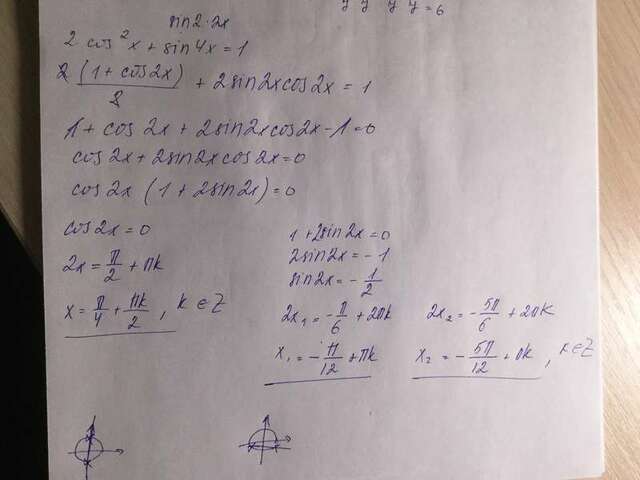 y y y y = 6
sin2·2x
2 cos²x + sin4x = 1
2 (1 + cos2x) / 2 + 2sin2xcos2x = 1
1 + cos 2x + 2sin2xcos2x - 1 = 0
cos2x + 2sin2x cos2x = 0
cos2x (1 + 2sin2x) = 0
cos2x = 0
2x = π/2 + πk
x = π/4 + πk/2 , k ∈ Z
1 + 2sin2x = 0
2sin2x = - 1
sin2x = - 1/2
2x₁ = - π/6 + 2πk
x₁ = - π/12 + πk
2x₂ = - 5π/6 + 2πk
x₂ = - 5π/12 + πk , k ∈ Z